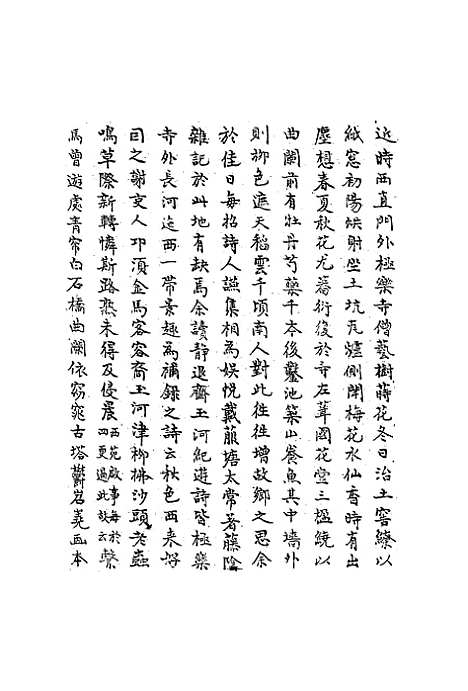 近時西直門外極樂寺僧藝樹蒔花冬日治土窖繚以
紙窓初陽烘射坐土坑瓦爐側閒梅花水仙香時有出
塵想春夏秋花尤蕃衍後於寺左葺國花堂三楹繞以
曲闌前有牡丹芍藥千本後鑿池築山養魚其中墻外
則柳色遮天稻雲千頃南人對此徃徃增故鄉之思余
於佳日每招詩人讌集相為娛悅戴菔塘太常著藤陰
雜記於此地有缺焉余讀靜退齋玉河紀遊詩皆極樂
寺外長河迤西一帶景趣為補錄之詩云秋色西来好
司之謝京人卭湏金馬客容裔玉河津柳拂沙頭老蟲
鳴草際新轉憐斯路熟未得及侵晨西苑啟事每於四更過此故云繫
馬曾遊處青帘白石橋曲闌依窈窕古塔鬱岧嶤画本